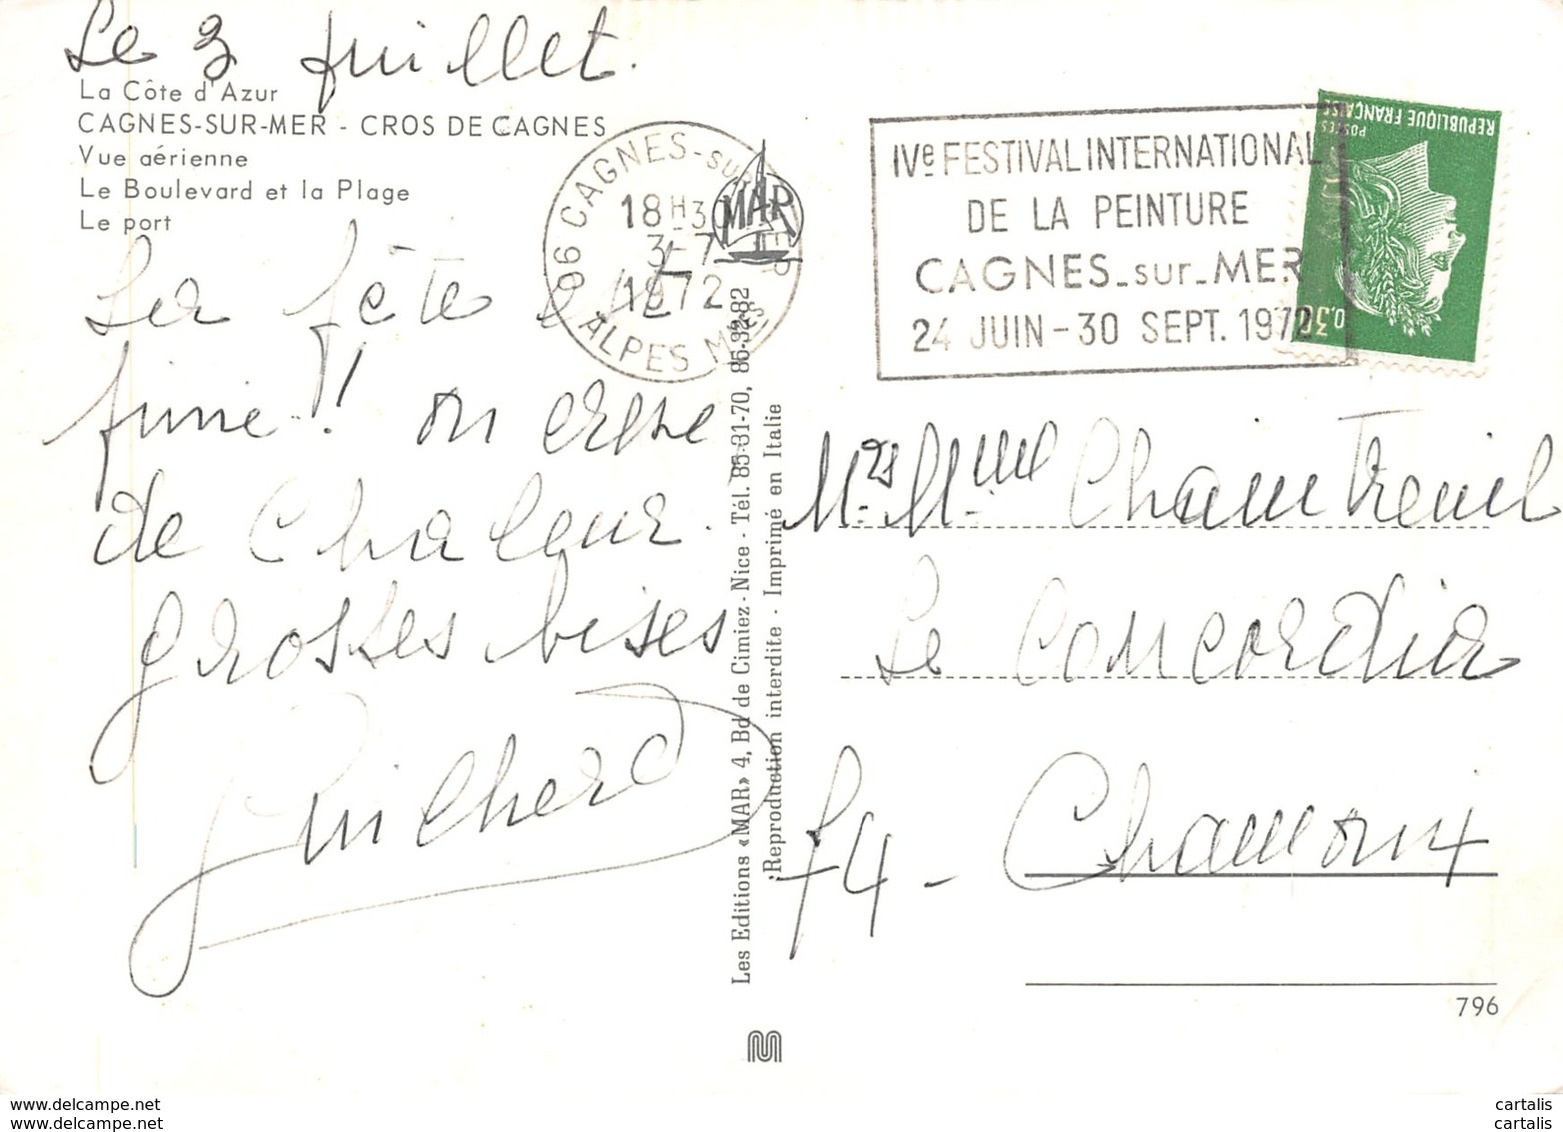 Le 3 juillet.
La Côte d'Azur
CAGNES-SUR-MER - CROS DE CAGNES
Vue aérienne
Le Boulevard et la Plage
Le port
La fête est
finie! on crève
de chaleur.
grosses bises
Guilherd
06 CAGNES-SUR-MER
18H30
3-7
1972
ALPES MMES
MAR
Les Editions «MAR» 4, Bd de Cimiez - Nice - Tél. 85-31-70, 85-32-82
Reproduction interdite - Imprimé en Italie
IVe FESTIVAL INTERNATIONAL
DE LA PEINTURE
CAGNES-sur-MER
24 JUIN-30 SEPT. 1972
REPUBLIQUE FRANCAISE
POSTES
0,30
Mr et Mme Chaintreuil
Le Concordia
74 - Chamonix
796
cartalis
www.delcampe.net
cartalis
www.delcampe.net